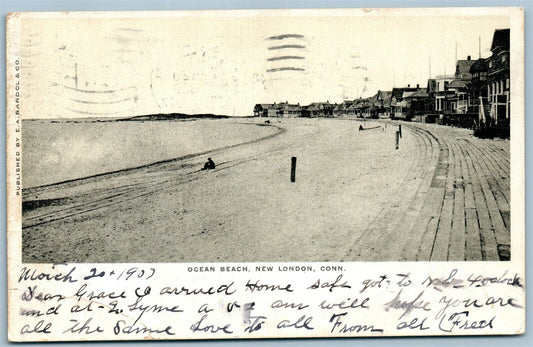 PUBLISHED BY E. A. BARDOL & CO.
OCEAN BEACH, NEW LONDON, CONN.
March 20th 1907
Dear Grace I arrived Home safe got to 4 oclock
and at Lyme am well hope you are
all the same Love to all From all Fred